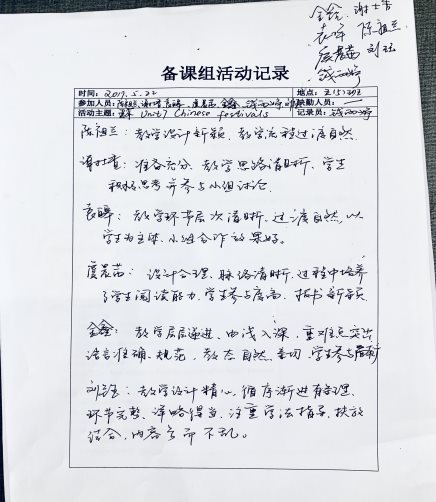 金鑫 谢士杏
袁晔 陈祖兰
虞若茜 刘珏
钱
备课组活动记录
时间:2017.5.22 地点:
参加人员:陈祖兰 袁晔 金鑫 缺勤人员:一
活动主题: Unit 7 Chinese festivals 记录员:
陈祖兰:教学设计新颖,教学流程过渡自然.
准备充分,教学思路清晰,学生
积极思考并参与小组讨论.
袁晔:教学环节层次清晰,过渡自然,以
学生为主体,小组合作效果好。
设计合理,脉络清晰,过程中培养
了学生阅读能力,学生参与度高,板书新颖.
金鑫:教学层层递进,由浅入深,重难点突出
语言准确、规范,教态自然、亲切,学生参与度高
刘珏:教学设计精心,循序渐进有条理,
环节完整,详略得当,注重学法指导,扶放
结合,内容多而不乱。